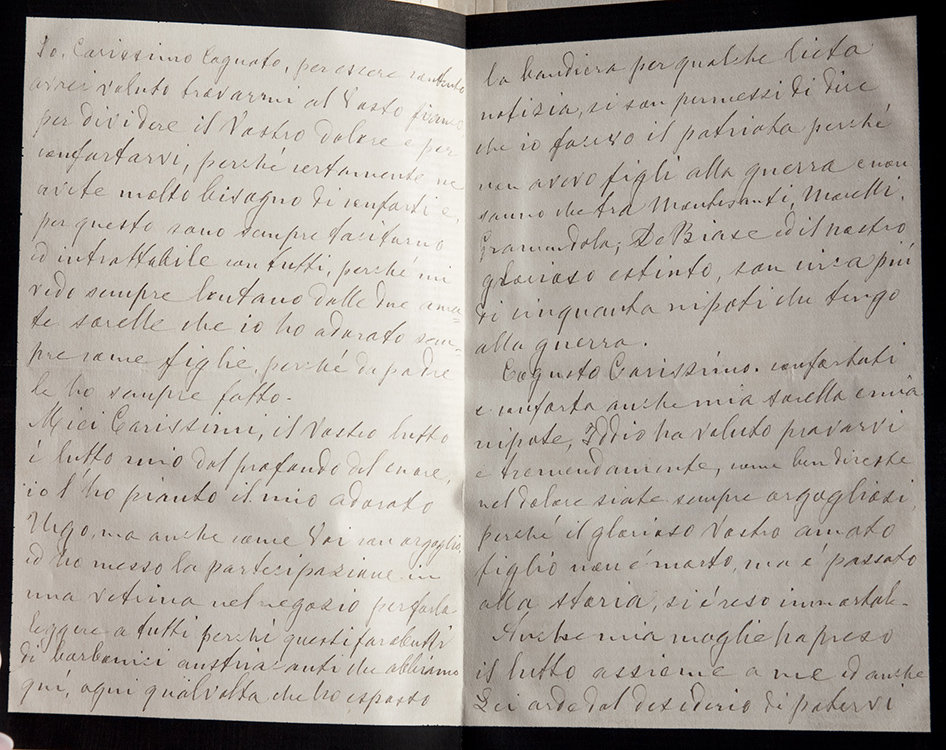 Io, Carissimo Cognato, per essere contento
avrei voluto trovarmi al Vostro fianco
per dividere il Vostro dolore e per
confortarvi, perché certamente ne
avete molto bisogno di conforti e,
per questo sono sempre taciturno
ed intrattabile con tutti, perché mi
vedo sempre lontano dalle due ama=
te sorelle che io ho adorato sem=
pre come figlie, perché da padre
le ho sempre fatto.
Miei Carissimi, il Vostro lutto
é lutto mio dal profondo del cuore,
io l'ho pianto il mio adorato
Ugo, ma anche come Voi con orgoglio,
ed ho messo la partecipazione in
una vetrina nel negozio per farla
leggere a tutti perché questi farabutti
di barbarici austriacanti che abbiamo
qui, ogni qualvolta che ho esposto
la bandiera per qualche lieta
notizia, si son permessi di dire
che io facevo il patriota perché
non avevo figli alla guerra e non
sanno che tra Montesanti, Morelli,
Gramendola, De Biase ed il nostro
glorioso estinto, son circa più
di cinquanta nipoti che tengo
alla guerra.
Cognato Carissimo. confortati
e conforta anche mia sorella e mia
nipote, Iddio ha voluto provarvi
e tremendamente, come ben direste
nel dolore siate sempre orgogliosi
perché il glorioso Vostro amato
figlio non é morto, ma é passato
alla storia, si é reso immortale.
Anche mia moglie ha preso
il lutto assieme a me ed anche
Lei arde dal desiderio di potervi